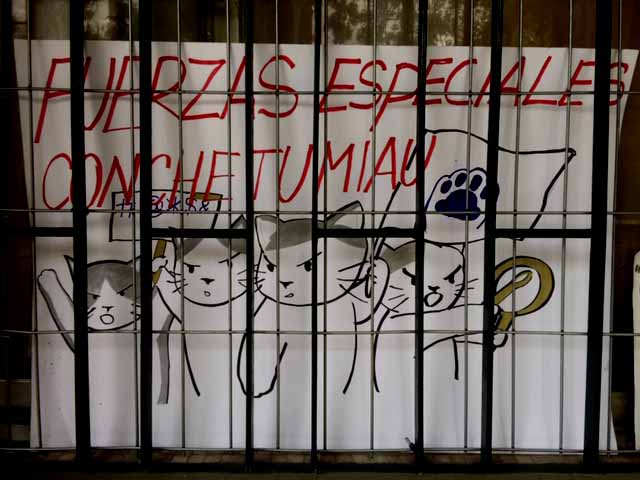 FUERZAS ESPECIALES
CONCHETUMIAU